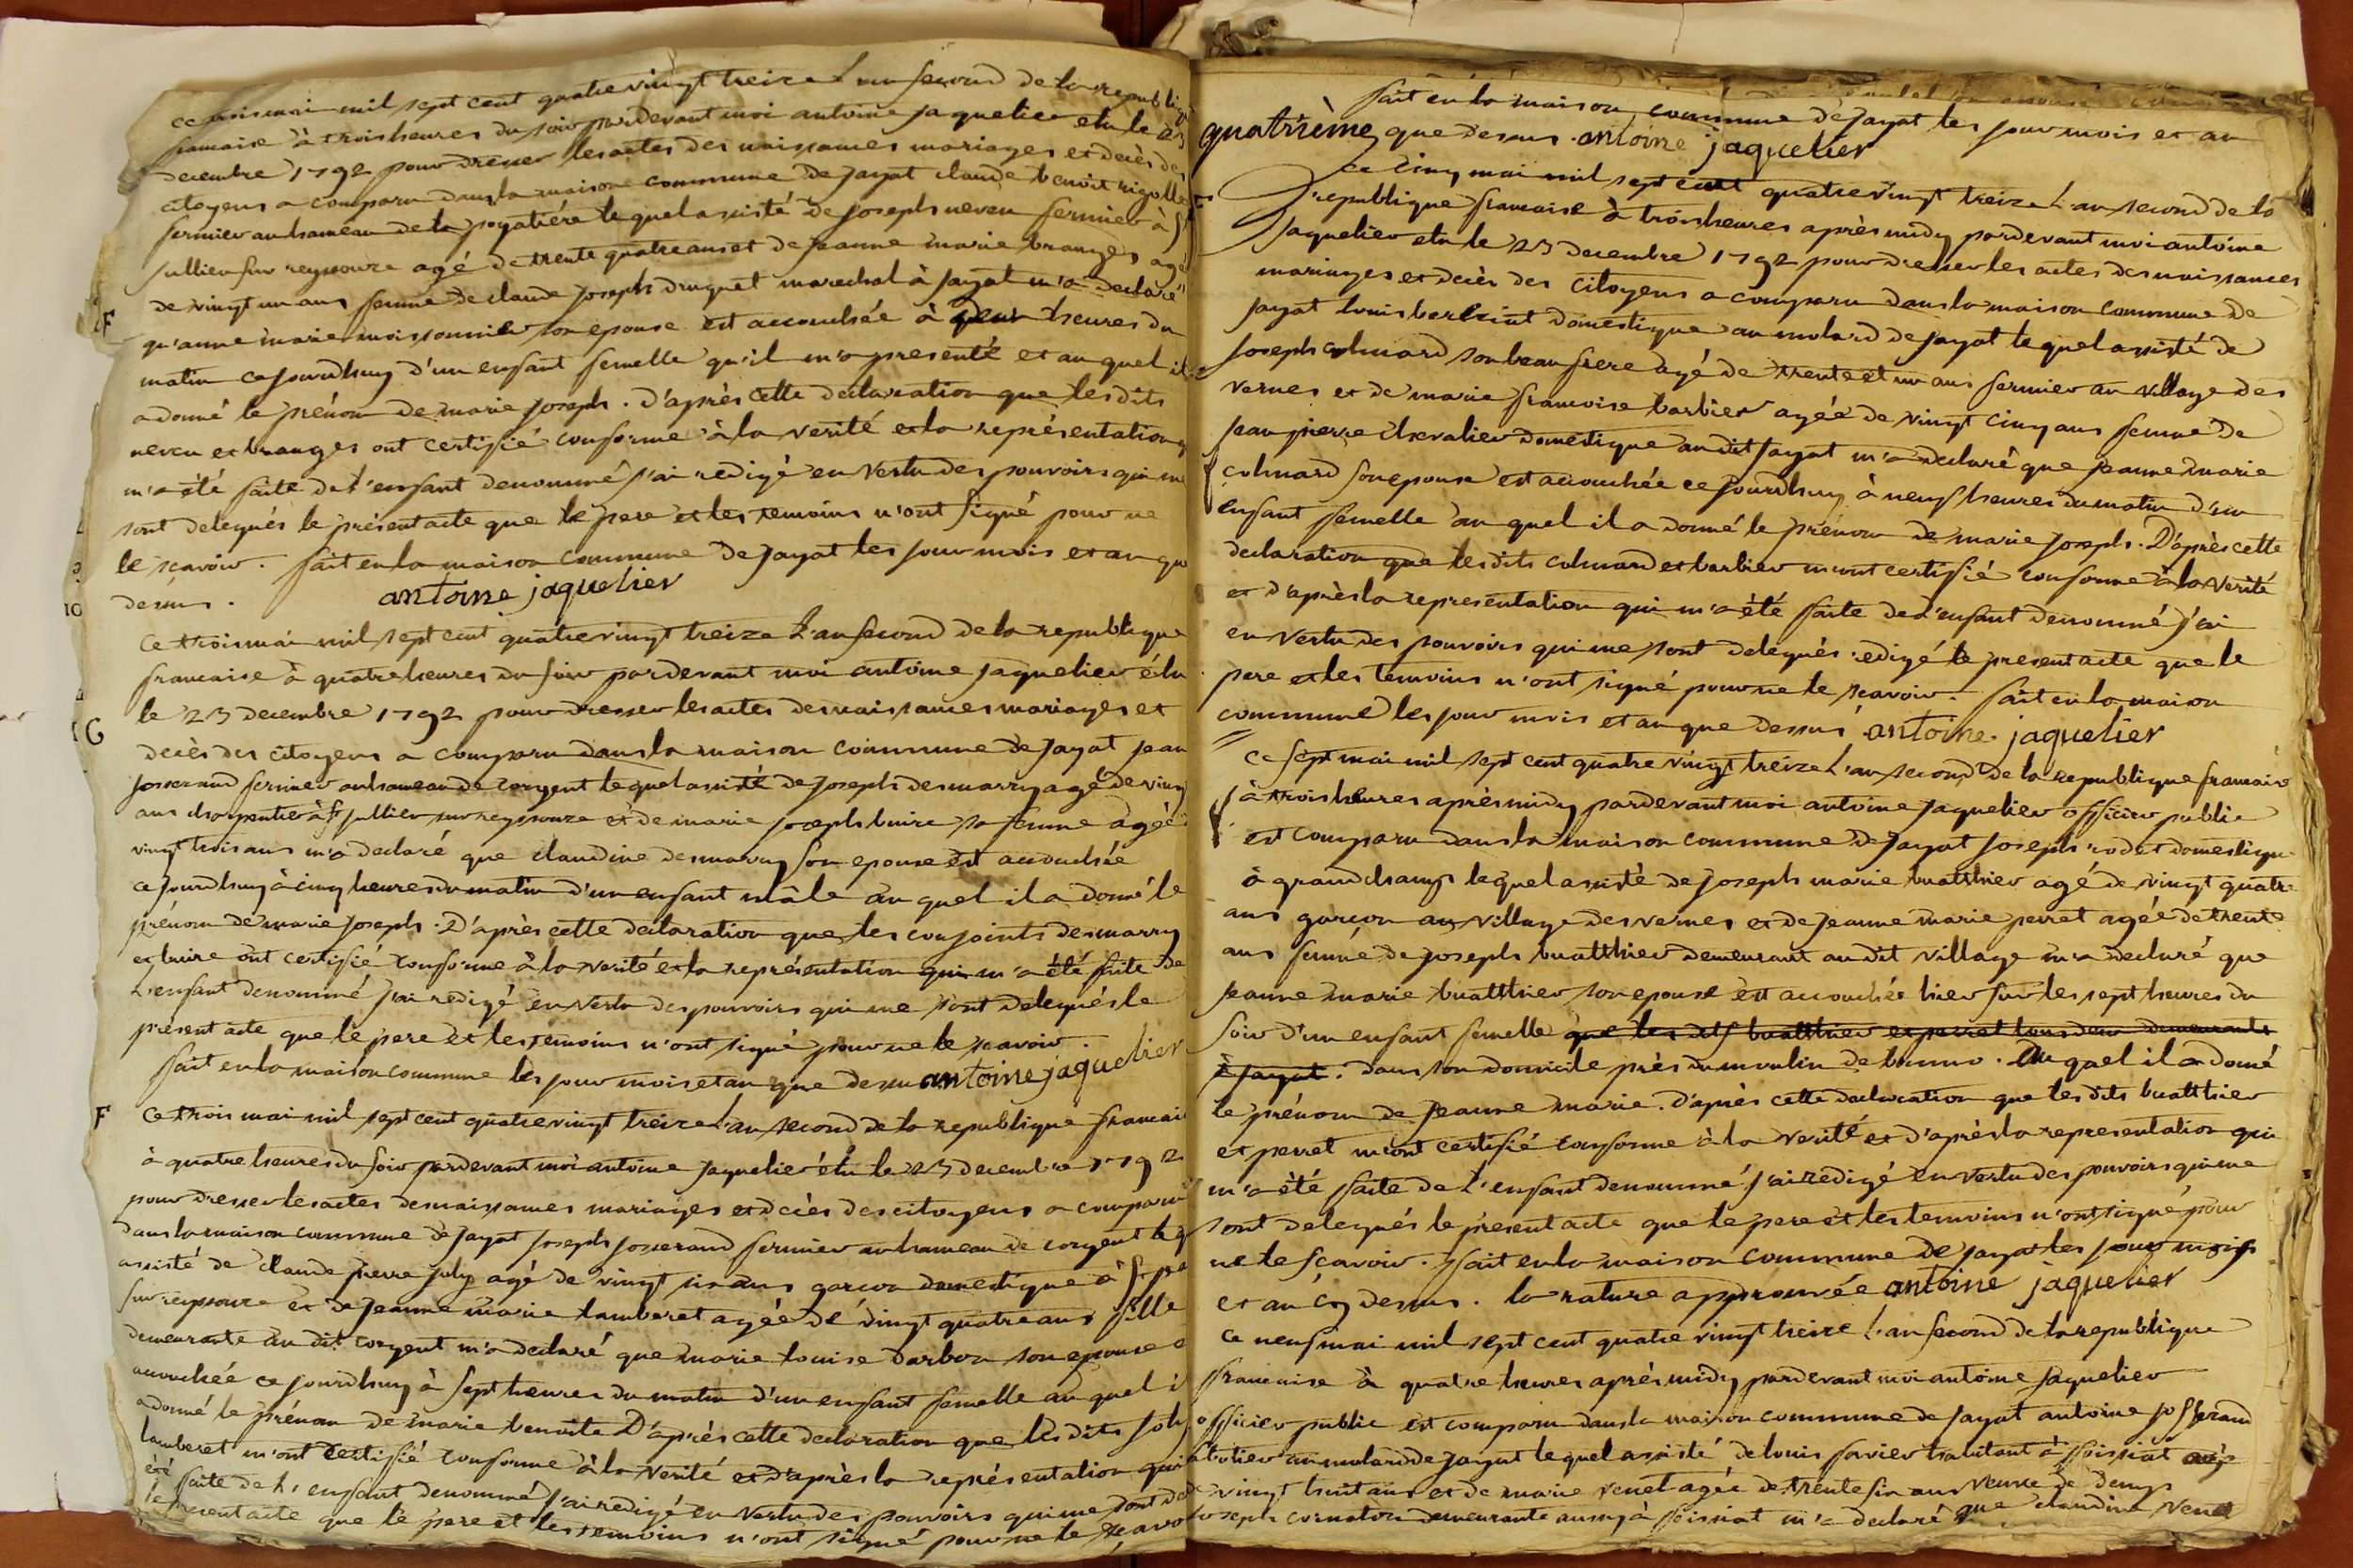 ce trois mai mil sept cent quatre vingt treize l'an second de la republiq
francaise à trois heures du soir pardevant moi antoine jaquelier elu le 23
decembre 1792 pour dresser les actes des naissances mariages et decès des
citoyens a comparu dans la maison commune de jayat claude benoit rigollet
fermier au hameau de la joyatiére lequel assisté de joseph neveu fermier à St
jullien sur reyssouze agé de trente quatre ans et de jeanne marie branges agé
de vingt un ans femme de claude joseph druguet marechal à jayat m'a declaré
F
qu'anne marie moissonnier son epouse est accouchée à deux heures du
matin ce jourdhuy d'un enfant femelle qu'il m'a presenté et au quel il
a donné le prénom de marie joseph. D'après cette declaration que les dits
neveu et branges ont certifié conforme à la verité et la représentation q
m'a été faite de l'enfant denommé j'ai redigé en vertu des pouvoirs qui me
sont delegués le présent acte que le pere et les temoins n'ont signé pour ne
le scavoir. fait en la maison commune de jayat les jour mois et an que
dessus. antoine jaquelier
10
ce trois mai mil sept cent quatre vingt treize l'an second de la republique
francaise à quatre heures du soir pardevant moi antoine jaquelier élu
le 23 decembre 1792 pour dresser les actes des naissances mariages et
G
decès des citoyens a comparu dans la maison commune de jayat jean
josserand fermier au hameau de corgent lequel assisté de joseph desmarry agé de ving
ans charpentier à St jullien sur reyssouze et de marie joseph buire sa femme agée
vingt trois ans m'a declaré que claudine desmarry son epouse est accouchée
ce jourdhuy à cinq heures du matin d'un enfant mâle au quel il a donné le
prénom de marie joseph. D'après cette declaration que les conjoints desmarry
et buire ont certifié conforme à la verité et la représentation qui m'a été faite de
l'enfant denommé j'ai redigé en vertu des pouvoirs qui me sont delegués le
présent acte que le pere et les temoins n'ont signé pour ne le scavoir.
fait en la maison commune les jour mois et an que dessus antoine jaquelier
F
ce trois mai mil sept cent quatre vingt treize l'an second de la republique francai
à quatre heures du soir pardevant moi antoine jaquelier élu le 23 decembre 1792
pour dresser les actes des naissances mariages et decès des citoyens a comparu
dans la maison commune de jayat joseph josserand fermier au hameau de corgent leq
assisté de claude pierre joly agé de vingt six ans garcon domestique à St
sur reyssouze et de jeanne marie lamberet agée de vingt quatre ans fille
demeurante au dit corgent m'a declaré que marie louise darbon son epouse e
accouchée ce jourdhuy à sept heures du matin d'un enfant femelle au quel i
a donné le prénom de marie benoite D'après cette declaration que les dits joly
lamberet m'ont certifié conforme à la verité et d'après la représentation qui
été faite de l'enfant denommé j'ai redigé en vertu des pouvoirs qui me sont de
le présent acte que le pere et les temoins n'ont signé pour ne le scavo
fait en la maison commune de jayat les jour mois et an
quatrième que dessus. antoine jaquelier
ce cinq mai mil sept cent quatre vingt treize l'an second de la
republique francaise à trois heures après midy pardevant moi antoine
jaquelier elu le 23 decembre 1792 pour dresser les actes des naissances
mariages et decès des citoyens a comparu dans la maison commune de
jayat louis domestique au molard de jayat lequel assisté de
joseph colmard son beau frere agé de trente et un ans fermier au village des
vernes et de marie francoise barbier agée de vingt cinq ans femme de
jean pierre chevalier domestique au dit jayat m'a declaré que jeanne marie
colmard son epouse est accouchée ce jourdhuy à neuf heures du matin d'un
enfant femelle au quel il a donné le prénom de marie joseph. D'après cette
declaration que les dits colmard et barbier m'ont certifié conforme à la verité
et d'après la representation qui m'a été faite de l'enfant denommé j'ai
en vertu des pouvoirs qui me sont delegués redigé le present acte que le
pere et les temoins n'ont signé pour ne le scavoir. fait en la maison
commune les jour mois et an que dessus antoine jaquelier
ce sept mai mil sept cent quatre vingt treize l'an second de la republique francais
à trois heures après midy pardevant moi antoine jaquelier officier public
est comparu dans la maison commune de jayat joseph rodet domestique
à grandchamp lequel assisté de joseph marie buatthier agé de vingt quatre
ans garçon au village des vernes et de jeanne marie perret agée de trente
ans femme de joseph buatthier demeurant au dit village m'a declaré que
jeanne marie buatthier son epouse est accouchée hier sur les sept heures du
soir d'un enfant femelle que les dits buatthier et perret tous deux demeurants
à jayat. dans son domicile près du moulin de. Au quel il a donné
le prénom de jeanne marie. d'après cette declaration que les dits buatthier
et perret m'ont certifié conforme à la verité et d'après la representation qui
m'a été faite de l'enfant denommé j'ai redigé en vertu des pouvoirs qui me
sont delegués le present acte que le pere et les temoins n'ont signé pour
ne le scavoir. fait en la maison commune de jayat les jour mois
et an cy dessus. la rature approuvée antoine jaquelier
ce neuf mai mil sept cent quatre vingt treize l'an second de la republique
francaise à quatre heures après midy pardevant moi antoine jaquelier
officier public est comparu dans la maison commune de jayat antoine josserand
au molard de jayat lequel assisté de louis favier habitant à foissiat agé
vingt huit ans et de marie venet agée de trente six ans veuve de denys
joseph cornaton demeurante aussy à foissiat m'a declaré que claudine vene